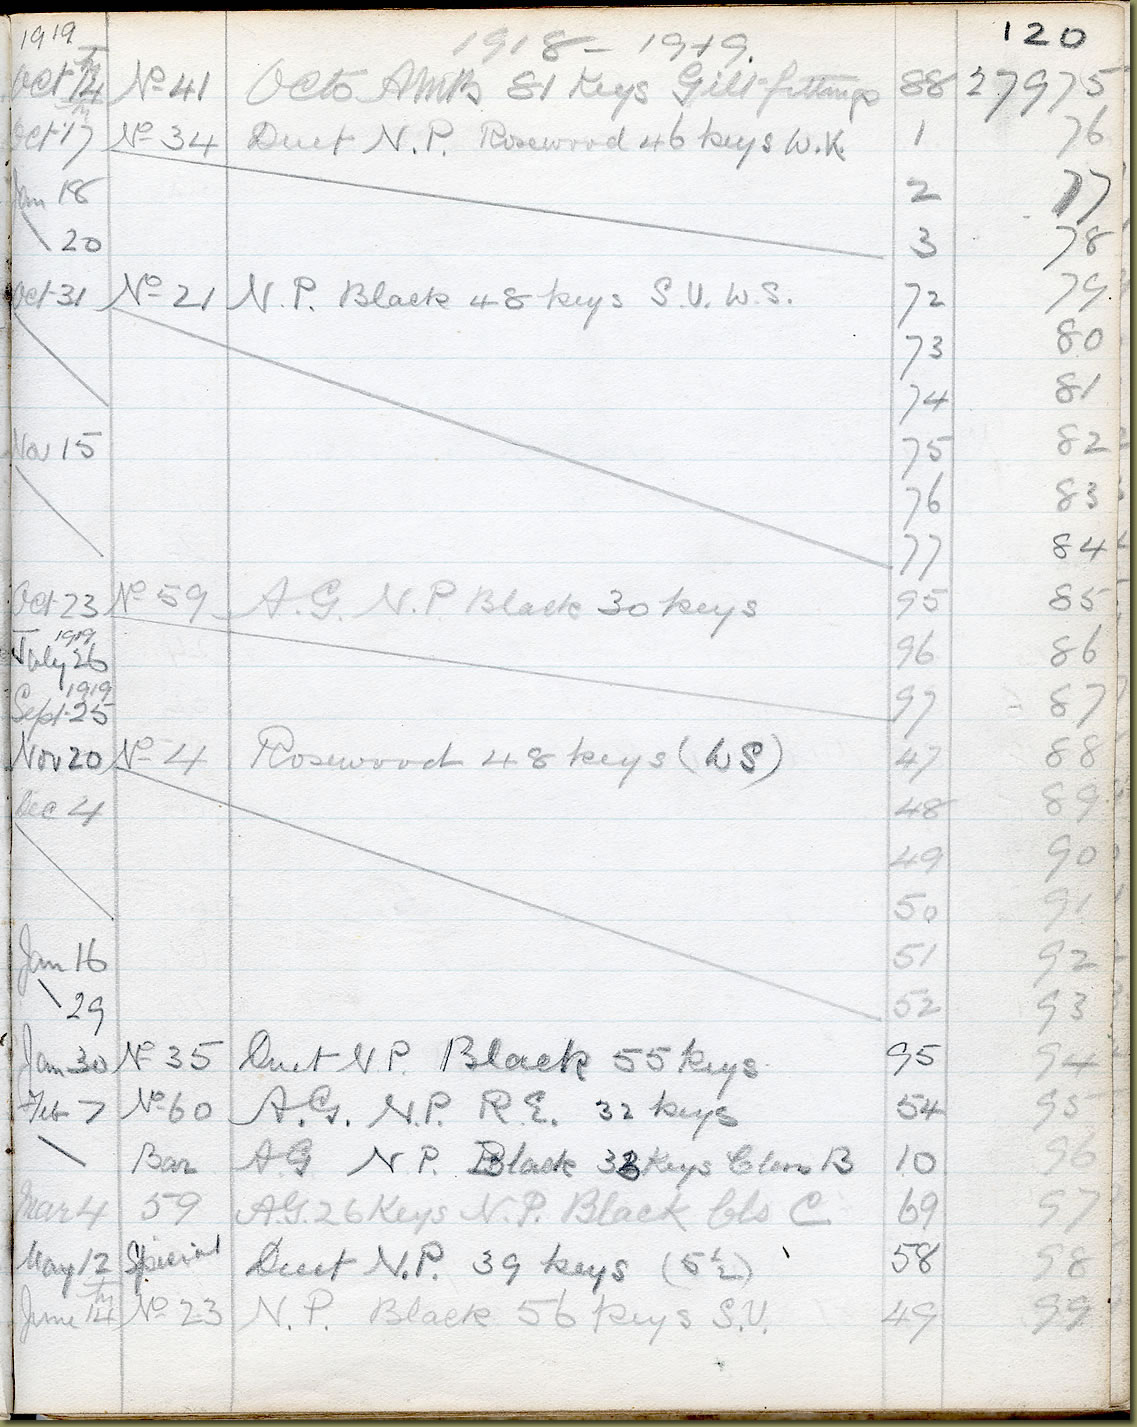 1919 1918 – 1919. 120
Oct 14th No 41 Octo AMB 81 Keys Gilt fittings 88 27975
Oct 17th No 34 Duet N.P. Rosewood 46 keys W.K. 1 76
Jan 18 2 77
20 3 78
Oct 31 No 21 N.P. Black 48 keys S.V. W.S. 72 79
73 80
74 81
Nov 15 75 82
76 83
77 84
Oct 23 No 59 A.G. N.P Black 30 keys 95 85
July 26 1919 96 86
Sept 25 1919 97 87
Nov 20 No 4 Rosewood 48 keys (WS) 47 88
Dec 4 48 89
49 90
50 91
Jan 16 51 92
29 52 93
Jan 30 No 35 Duet N.P. Black 55 keys 95 94
Feb 7 No 60 A.G. N.P. R.E. 32 keys 54 95
Bar AG N.P. Black Keys B 10 96
Mar 4 59 A.G. 26 Keys N.P. Black Cls C 69 97
May 12 Special Duet N.P. 39 keys (5½) 58 98
June 14th No 23 N.P. Black 56 keys S.V. 49 99